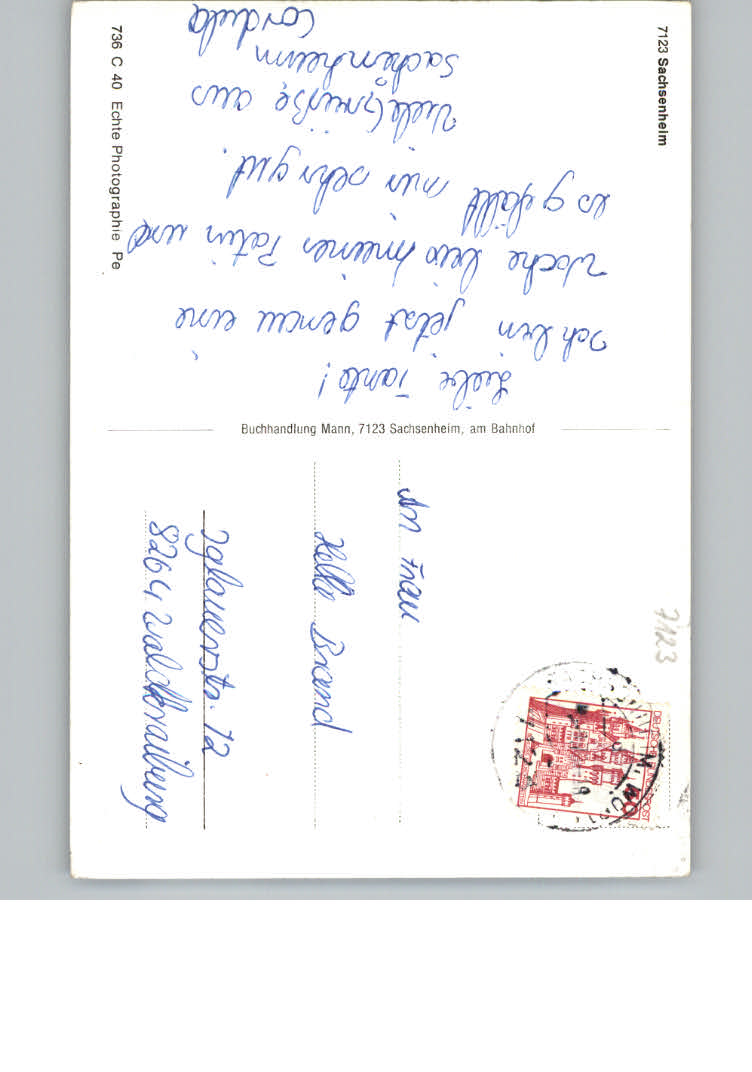 7123 Sachsenheim
Liebe Tante!
Ich bin jetzt genau eine
Woche bei meiner Patin und
es gefällt mir sehr gut.
Viele Grüße aus
Sachsenheim
Cordula
736 C 40 Echte Photographie Pe
Buchhandlung Mann, 7123 Sachsenheim, am Bahnhof
An Frau
Helle Brand
Iglauerstr. 12
8264 Waldkraiburg
7123
DEUTSCHE BUNDESPOST